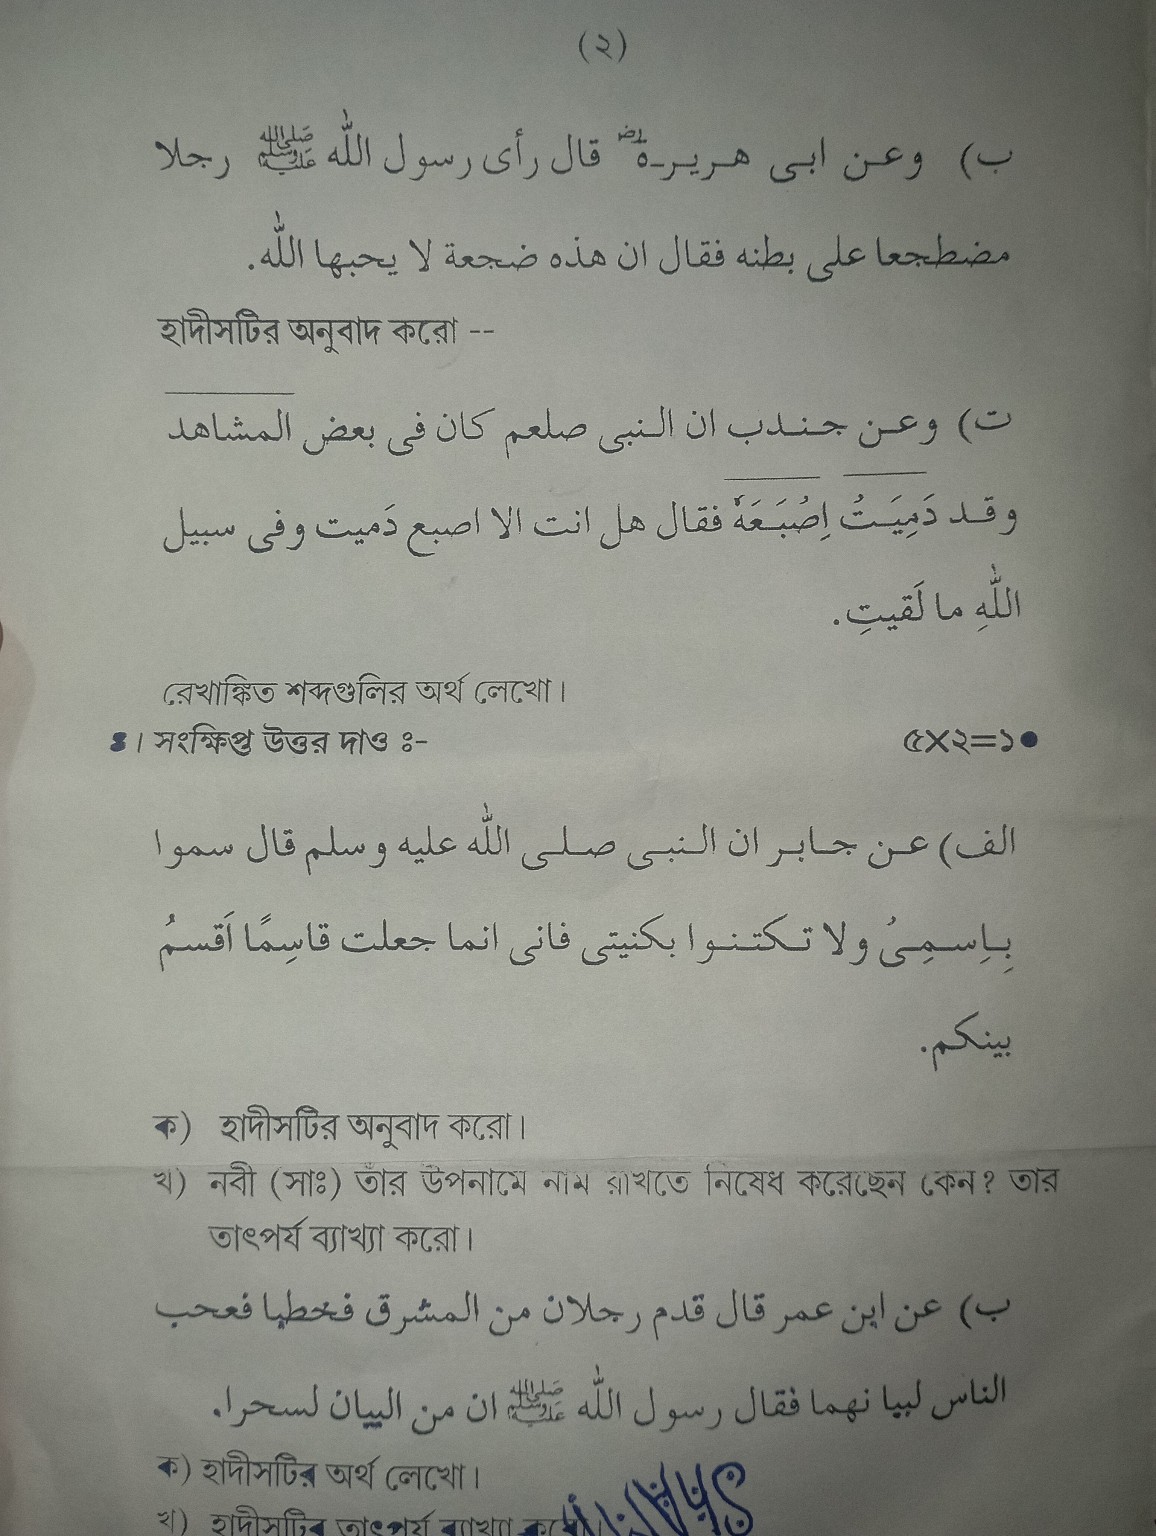 (২)
ب) وعن ابى هريرة رض قال رأى رسول الله ﷺ رجلا
مضطجعا على بطنه فقال ان هذه ضجعة لا يحبها الله.
হাদীসটির অনুবাদ করো --
ت) وعن جندب ان النبى صلعم كان فى بعض المشاهد
وقد دَمِيَتُ اِصُبَعَهٗ فقال هل انت الا اصبع دَميت وفى سبيل
اللهِ ما لَقيتِ.
রেখাঙ্কিত শব্দগুলির অর্থ লেখো।
৪। সংক্ষিপ্ত উত্তর দাও ঃ- ৫X২=১০
الف) عن جابر ان النبى صلى الله عليه وسلم قال سموا
بِاِسمِىُ ولا تكتنوا بكنيتى فانى انما جعلت قاسِمًا اَقسمُ
بينكم.
ক) হাদীসটির অনুবাদ করো।
খ) নবী (সাঃ) তাঁর উপনামে নাম রাখতে নিষেধ করেছেন কেন? তার
তাৎপর্য ব্যাখ্যা করো।
ب) عن ابن عمر قال قدم رجلان من المشرق فخطبا فعجب
الناس لبيا نهما فقال رسول الله ﷺ ان من البيان لسحرا.
ক) হাদীসটির অর্থ লেখো।
খ) হাদীসটির তাৎপর্য ব্যাখ্যা করো।